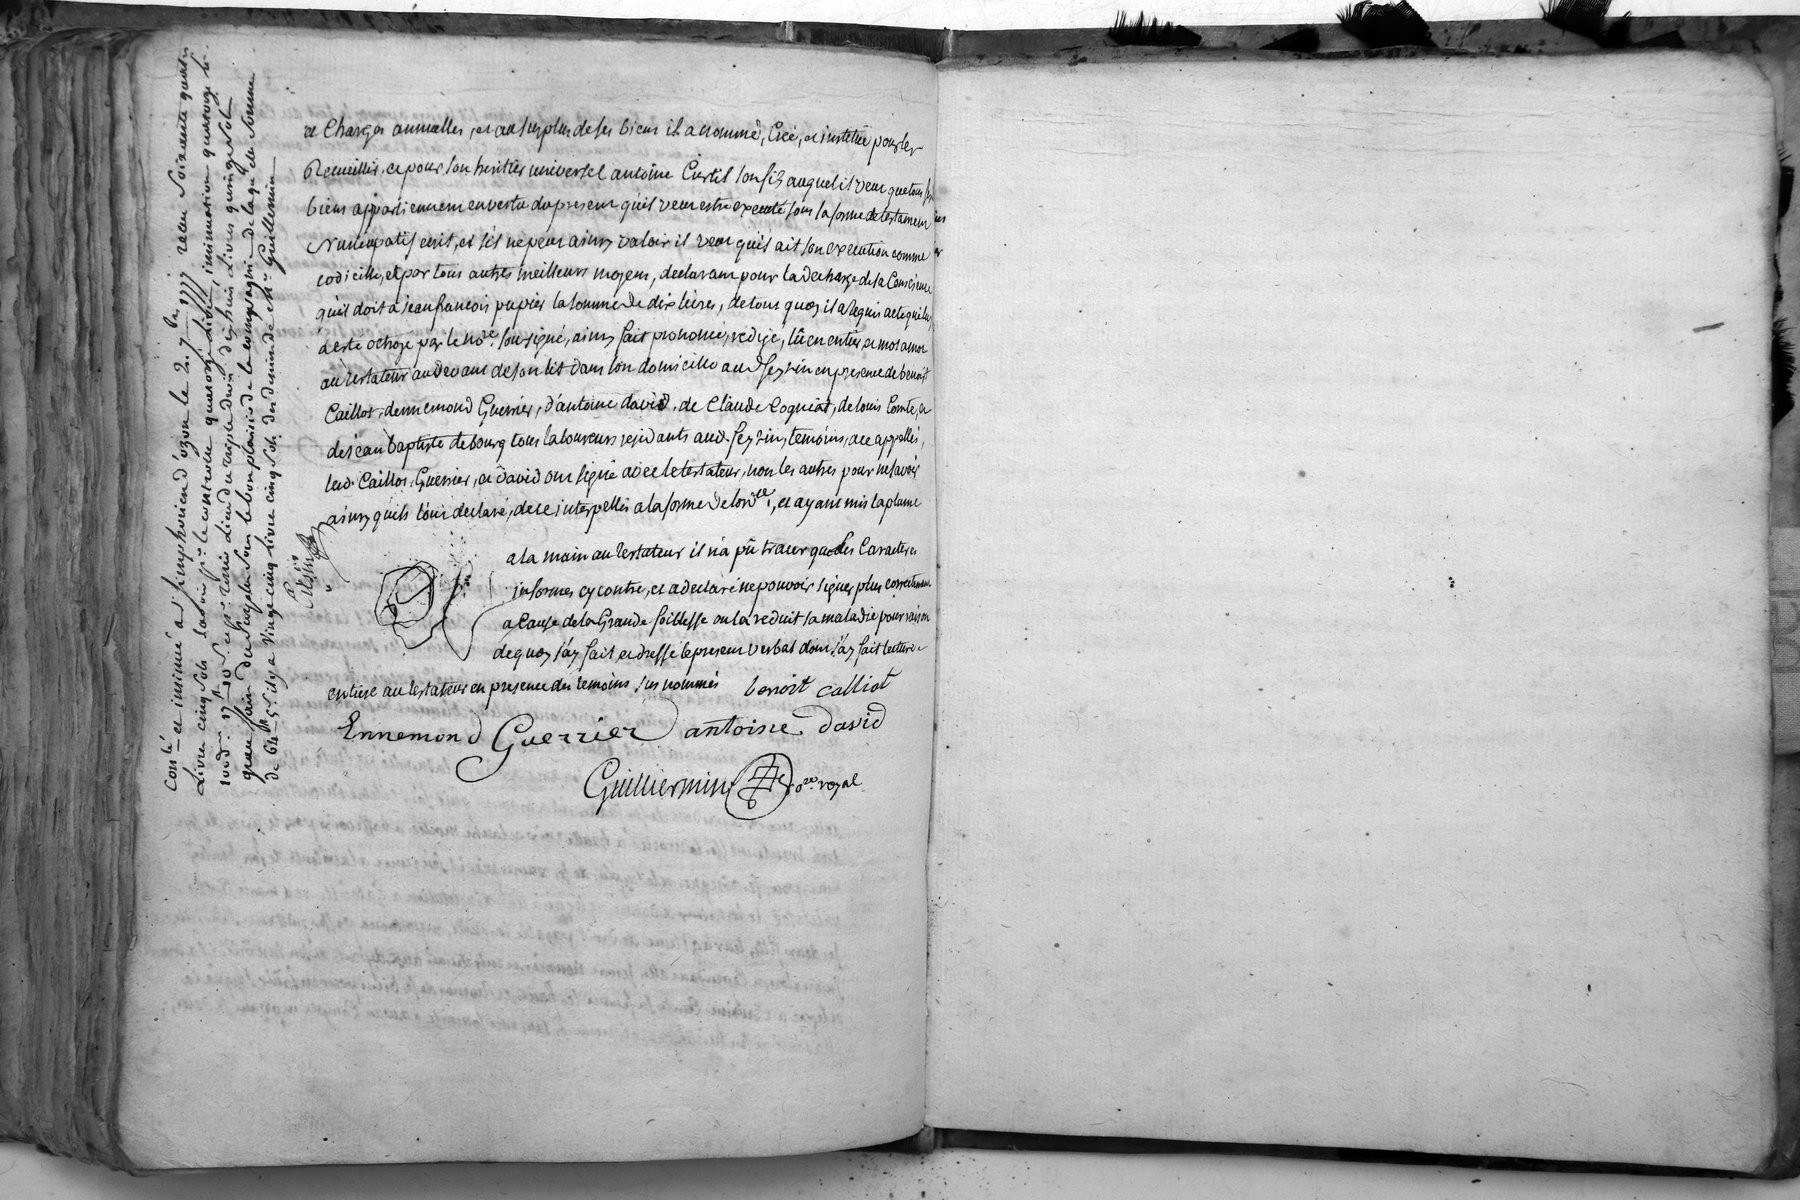 et Charges annuelles, et au surplus de ses biens il a nommé, Créé, et institué pour les
Recueillir, et pour son heritier universel antoine Curtil son fils auquel il veut que tous ses
biens appartiennent en vertu du present qu'il veut estre executé sous la forme de testament
Nuncupatif ecrit, et s'il ne peut ainsy valoir il veut qu'il ait son execution comme
codicille, et par tous autres meilleurs moyens, declarant pour la decharge de sa Conscience
qu'il doit a jean francois papier la somme de dix livres, de tout quoy il a requis acte qui luy
a esté octroyé par le no.re sousigné, ainsy fait prononcé, redigé, lû en entier, et mot a mot
au testateur au devant de son lit dans son domicille aud. feyzin en presence de benoit
Caillot, dennemond Guerrier, d'antoine david, de Claude Cogniat, de louis Comte, et
de jean baptiste debourg tous laboureurs residants aud. feyzin, temoins, a ce appellés,
lesd. Caillot, Guerrier, et david ont signé avec le testateur, non les autres pour ne savoir
ainsy qu'ils l'ont declaré, de ce interpellés a la forme de lord.ce, et ayant mis la plume
a la main au testateur il n'a pû tracer que les Caracteres
informes cy contre, et a declaré ne pouvoir signer plus correctement
a Cause de la Grande foiblesse ou la reduit sa maladie pour raison
de quoy j'ay fait, et dressé le present verbal dont j'ay fait lecture
entiere au testateur en presence des temoins sus nommés
benoit calliot
Ennemond Guerrier antoine david
Guilliermin no.re royal
Con.lé et insinué a s. simphorien d'ozon le 2. 7.bre 1777 receu Soixante quatre
Livres cinq sols savoir p.r le controlle
de 64.lt 5.s il y a Vingt cinq livre cinq sols des deniers de m.r Guillermin